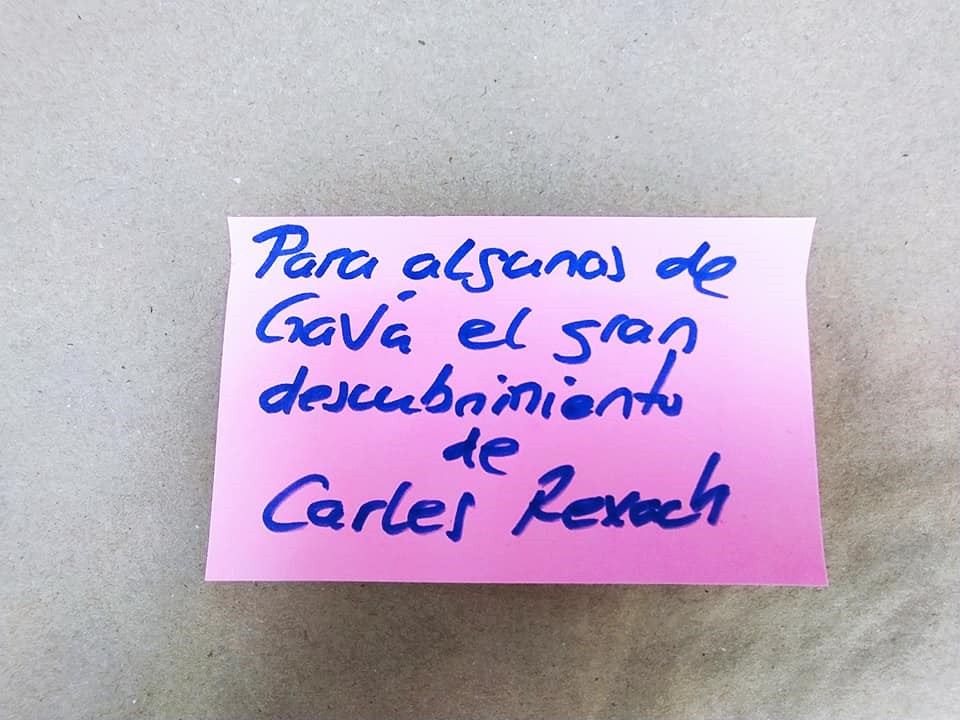 Para algunos de
Gavá el gran
descubrimiento
de
Carles Rexach